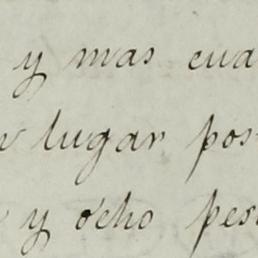 y mas cua
lugar pos
y ocho pes